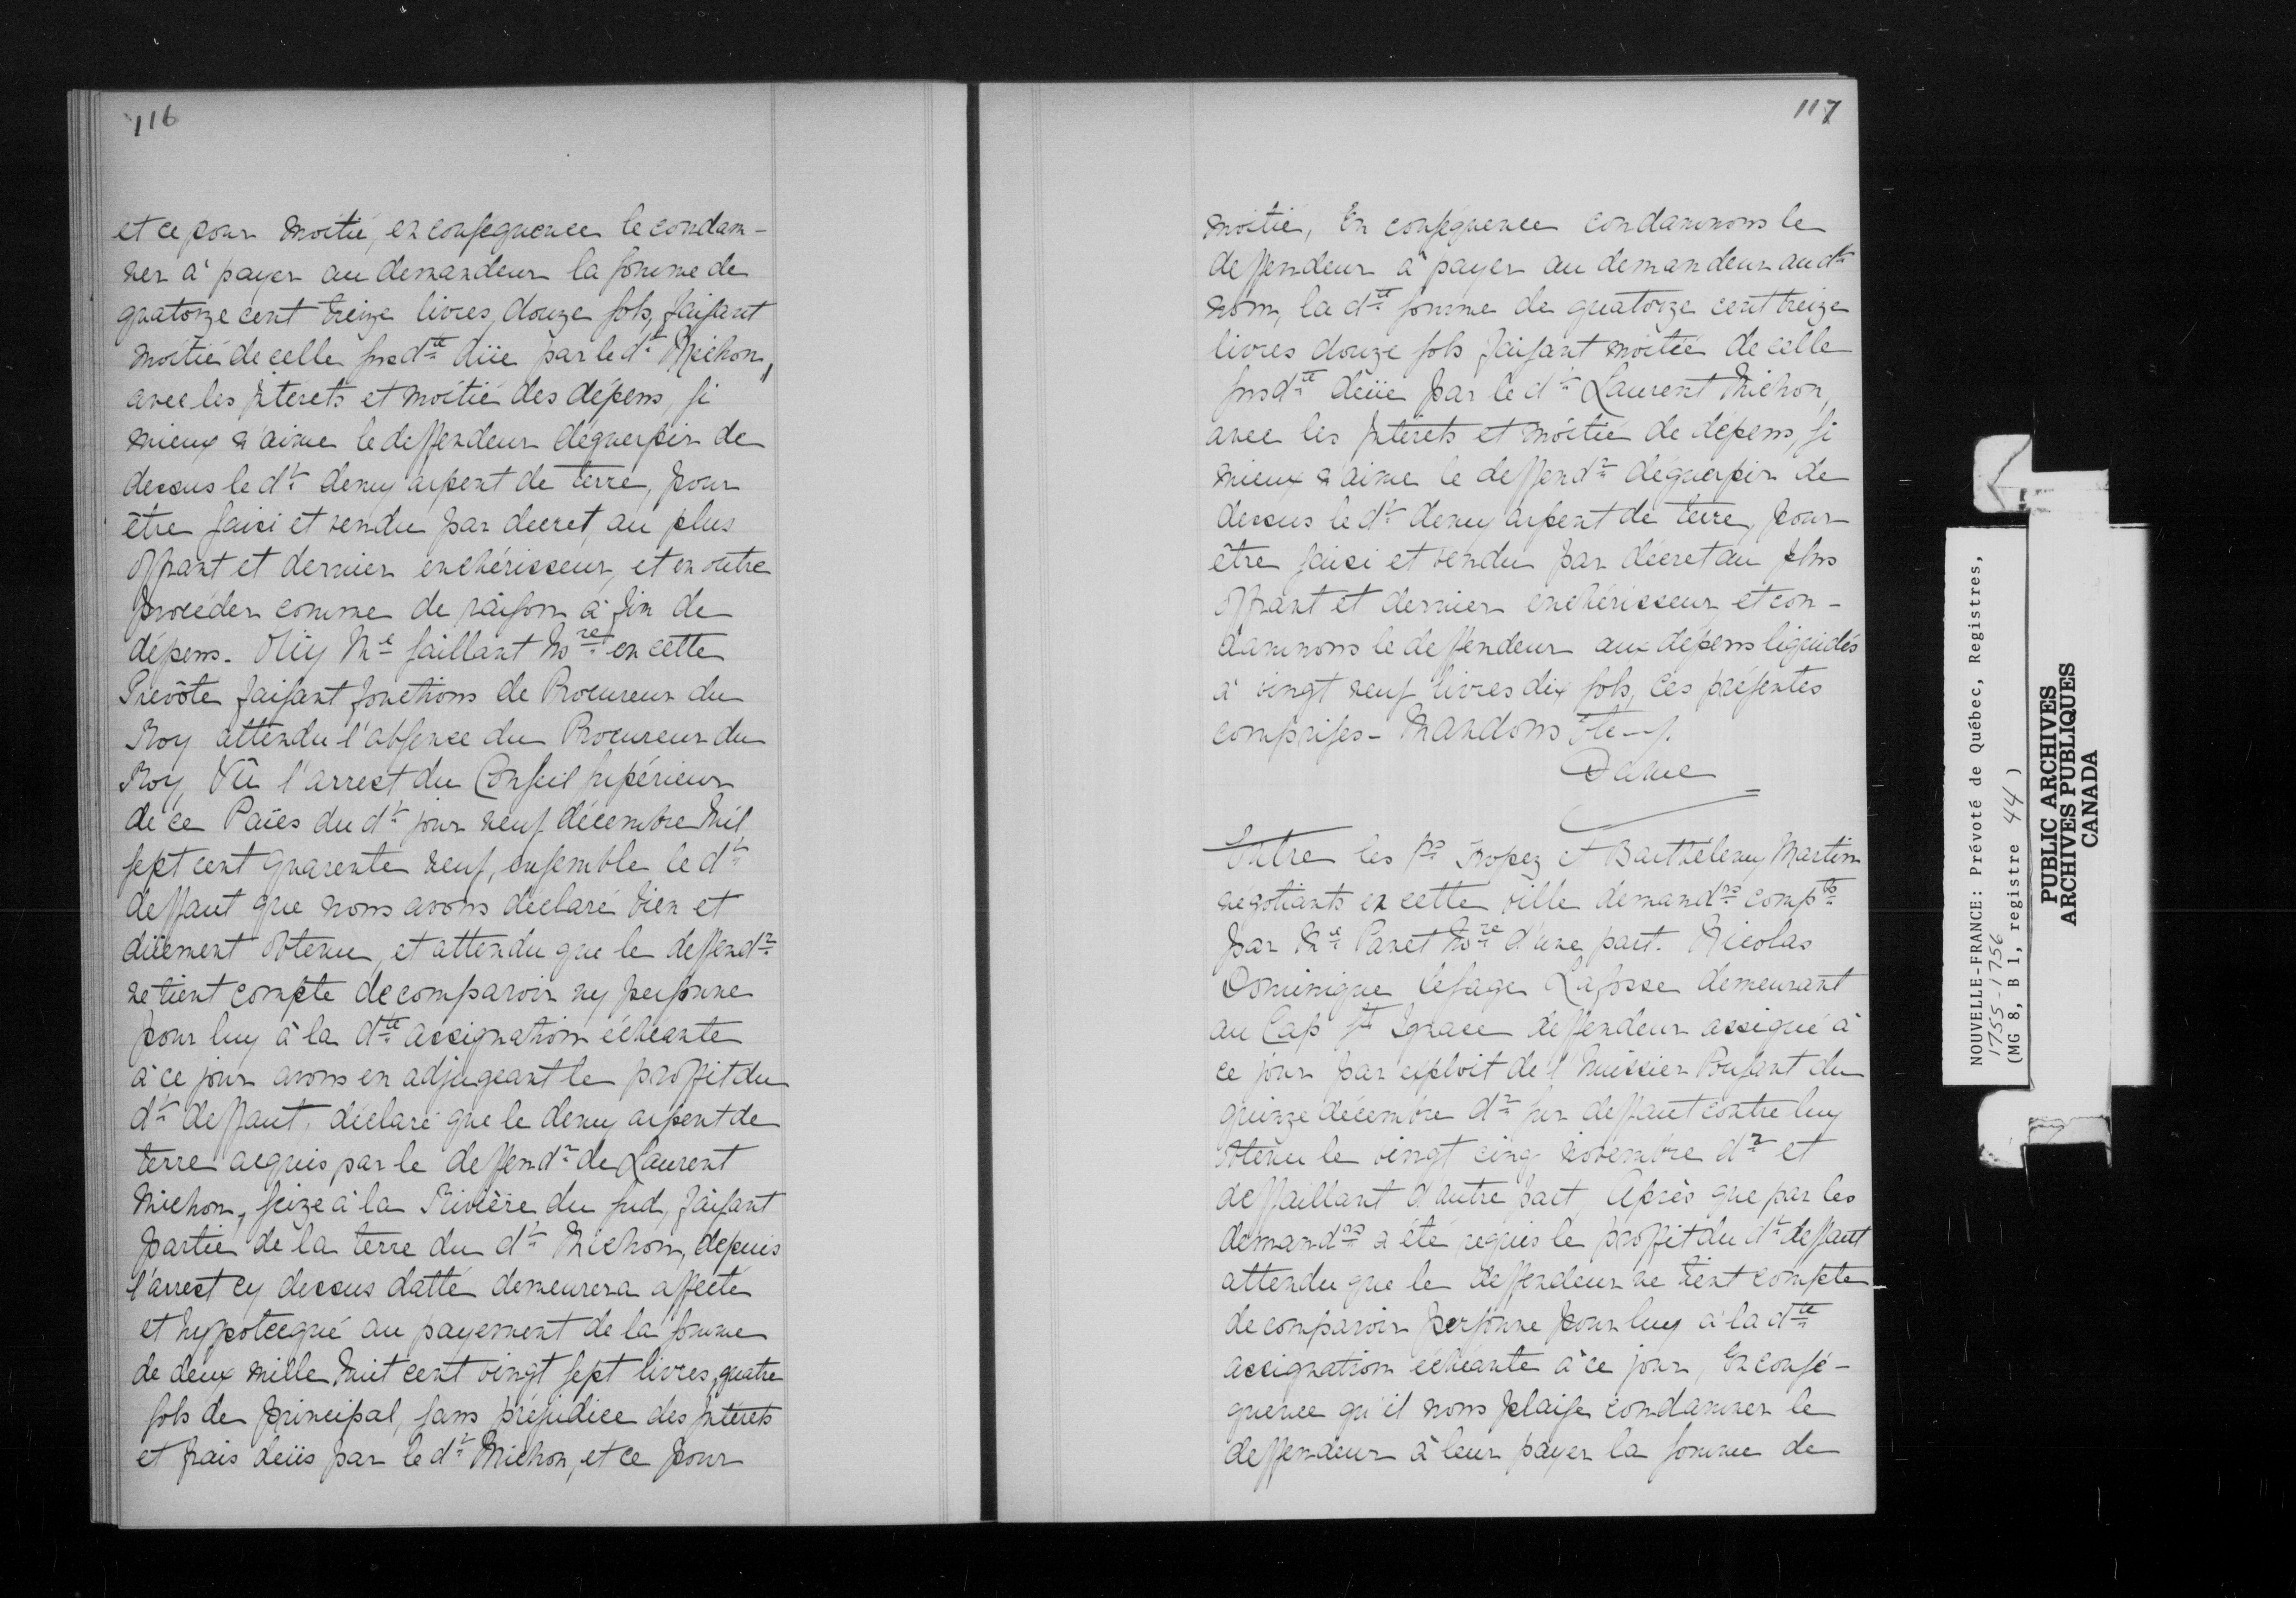 116
et ce pour moitié, en consequence le condam-
ner à payer au demandeur la somme de
quatorze cent treize livres, douze sols, faisant
moitié de celle susd.te düe par le d.t Michon,
avec les Interets et moitié des dépens, si
mieux n'aime le deffendeur déguerpir de
dessus le d.t demy arpent de terre, pour
être saisi et vendu par decret, au plus
offrant et dernier enchérisseur, et en outre
procéder comme de raison à fin de
dépens. Oüy M.e Saillant No.re en cette
Prevôté faisant fonctions de Procureur du
Roy attendu l'absence du Procureur du
Roy, Vû l'arrest du Conseil Supérieur
de ce Païs du d.t jour neuf décembre Mil
sept cent quarente neuf, ensemble le d.t
deffaut que nous avons déclaré bien et
düement obtenu, et attendu que le deffend.r
ne tient compte de comparoir ny personne
pour luy à la d.te assignation échéante
à ce jour avons en adjugeant le proffit du
d.t deffaut, déclaré que le demy arpent de
terre acquis par le deffend.r de Laurent
Michon, seize à la Rivière du sud, faisant
partie de la terre du d.t Michon, depuis
l'arrest cy dessus datté demeurera affecté
et hypotecqué au payement de la somme
de deux mille huit cent vingt sept livres, quatre
sols de principal, sans préjudice des Intérets
et frais deüs par le d.t Michon, et ce pour
117
moitié, En conséquence condamnons le
deffendeur à payer au demandeur aud.t
nom, la d.te somme de quatorze cent treize
livres douze sols faisant moitié de celle
susd.te deüe par le d.t Laurent Michon,
avec les Intérets et moitié de dépens, si
mieux n'aime le deffend.r déguerpir de
dessus le d.t demy arpent de terre, pour
être saisi et vendu par décret au plus
offrant et dernier enchérisseur, et con-
damnons le deffendeur aux dépens liquidés
à vingt neuf livres dix sols, Ces présentes
comprises - Mandons
Daine
Entre les S.rs Tropez et Barthélemy Martin
négotiants en cette ville demand.rs comp.ts
par M.e Panet No.re d'une part. Nicolas
Dominique Lesage Lafosse demeurant
au Cap S.t Ignace deffendeur assigné à
ce jour par exploit de l'huissier Poussart du
quinze décembre d.r sur deffaut contre luy
obtenu le vingt cinq novembre d.r et
deffaillant d'autre part, Après que par les
demand.rs a été requis le proffit du d.t deffaut
attendu que le deffendeur ne tient compte
de comparoir personne pour luy à la d.te
assignation échéante à ce jour, En consé-
quence qu'il nous plaise condamner le
deffendeur à leur payer la somme de
NOUVELLE-FRANCE: Prévoté de Québec, Registres,
1755-1756
(MG 8, B 1, registre 44)
PUBLIC ARCHIVES
ARCHIVES PUBLIQUES
CANADA